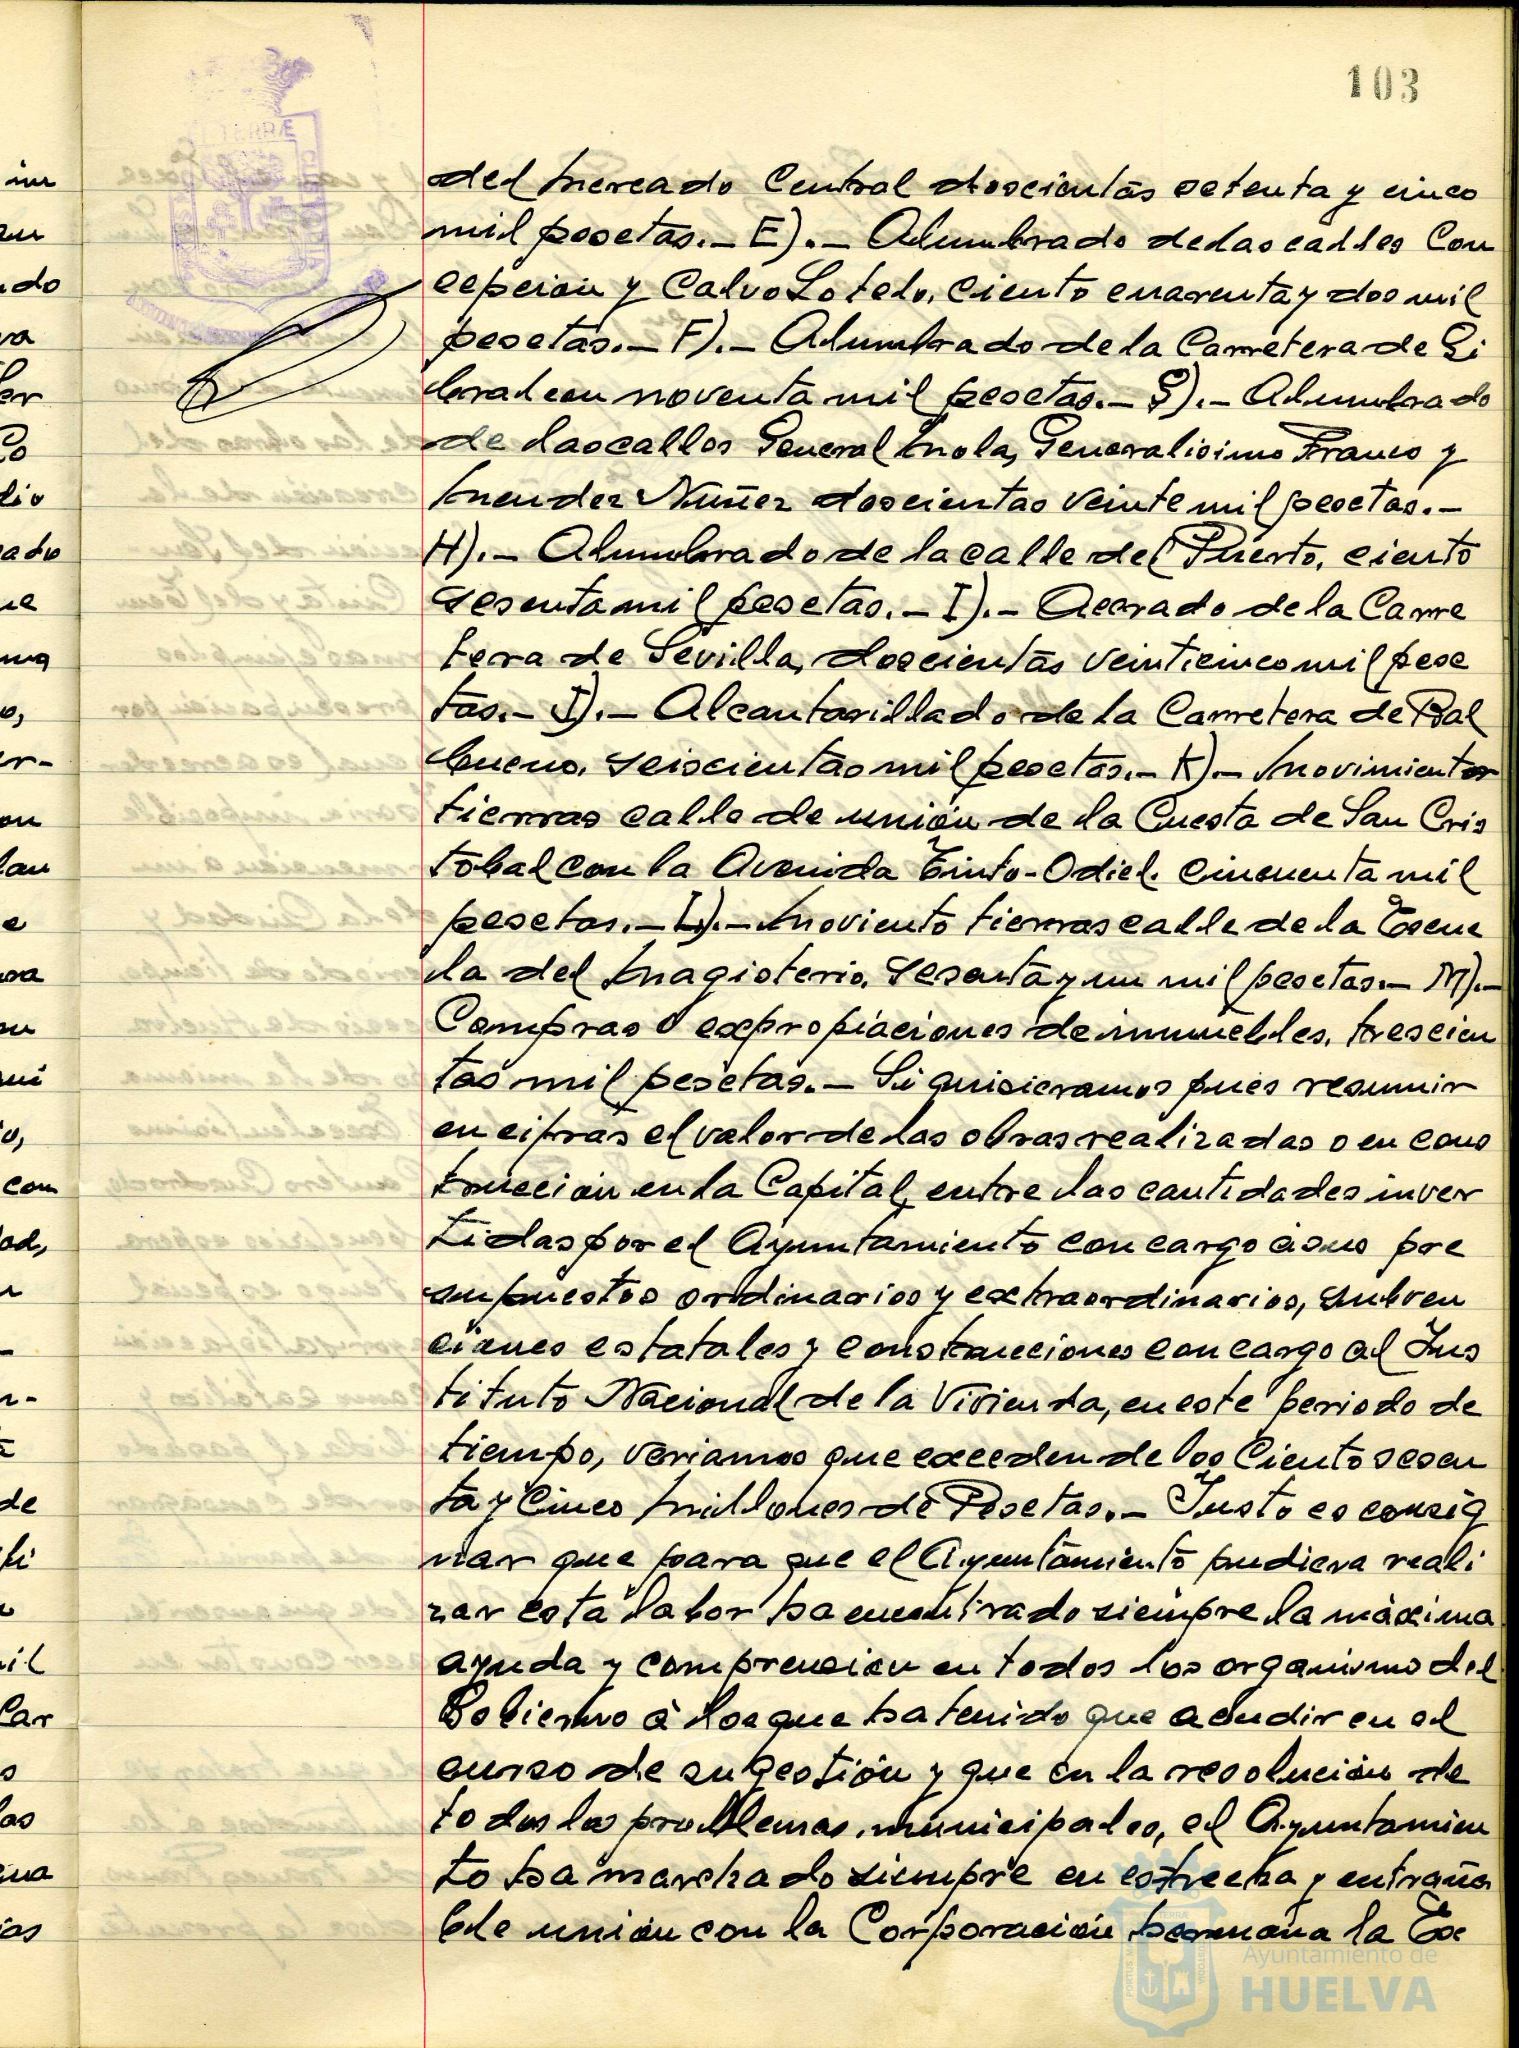 103
del Mercado Central doscientas setenta y cinco
mil pesetas.- E).- Alumbrado de las calles Con
cepción y Calvo Sotelo, ciento cuarenta y dos mil
pesetas.- F).- Alumbrado de la Carretera de Gi
braleon noventa mil pesetas.- G).- Alumbrado
de las calles General Mola, Generalisimo Franco y
Mendez Nuñez doscientas veinte mil pesetas.-
H).- Alumbrado de la calle del Puerto, ciento
sesenta mil pesetas.- I).- Acerado de la Carre
tera de Sevilla, doscientas veinticinco mil pese
tas.- J).- Alcantarillado de la Carretera de Bal
bueno, seiscientas mil pesetas.- K).- Movimientos
tierras calle de unión de la Cuesta de San Cris
tobal con la Avenida Tinto-Odiel. cincuenta mil
pesetas.- L).- Moviento tierras calle de la Escue
la del Magisterio, sesenta y un mil pesetas.- M).-
Compras o expropiaciones de inmuebles, trescien
tas mil pesetas.- Si quisieramos pues resumir
en cifras el valor de las obras realizadas o en cons
trucción en la Capital, entre las cantidades inver
tidas por el Ayuntamiento con cargo á sus pre
supuestos ordinarios y extraordinarios, subven
ciones estatales y construcciones con cargo al Ins
tituto Nacional de la Vivienda, en este periodo de
tiempo, veriamos que exceden de los Ciento sesen
ta y Cinco Millones de Pesetas.- Justo es consig
nar que para que el Ayuntamiento pudiera reali
zar esta labor ha encontrado siempre la máxima
ayuda y comprension en todos los organismo del
Gobierno á los que ha tenido que acudir en el
curso de su gestión y que en la resolución de
todos los problemas municipales, el Ayuntamien
to ha marchado siempre en estrecha y entraña
ble unión con la Corporación hermana la Ex
Ayuntamiento de
HUELVA